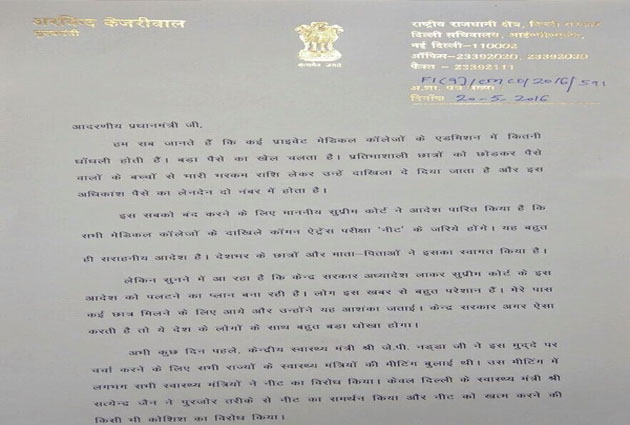 अरविन्द केजरीवाल
मुख्यमंत्री
सत्यमेव जयते
राष्ट्रीय राजधानी क्षेत्र, दिल्ली सरकार
दिल्ली सचिवालय, आई०पी०एस्टेट,
नई दिल्ली-110002
ऑफिस-23392020, 23392030
फैक्स - 23392111
अ.शा. पत्र संख्या F1(9)/CMCD/2016/591
दिनांक: 20-5-2016
आदरणीय प्रधानमंत्री जी,
हम सब जानते हैं कि कई प्राइवेट मेडिकल कॉलेजों के एडमिशन में कितनी
धाँधली होती है। बड़ा पैसे का खेल चलता है। प्रतिभाशाली छात्रों को छोड़कर पैसे
वालों के बच्चों से भारी भरकम राशि लेकर उन्हें दाखिला दे दिया जाता है और इस
अधिकांश पैसे का लेनदेन दो नंबर में होता है।
इस सबको बंद करने के लिए माननीय सुप्रीम कोर्ट ने आदेश पारित किया है कि
सभी मेडिकल कॉलेजों के दाखिले कॉमन ऐंट्रेंस परीक्षा 'नीट' के जरिये होंगे। यह बहुत
ही सराहनीय आदेश है। देशभर के छात्रों और माता-पिताओं ने इसका स्वागत किया है।
लेकिन सुनने में आ रहा है कि केन्द्र सरकार अध्यादेश लाकर सुप्रीम कोर्ट के इस
आदेश को पलटने का प्लान बना रही है। लोग इस खबर से बहुत परेशान हैं। मेरे पास
कई छात्र मिलने के लिए आये और उन्होंने यह आशंका जताई। केन्द्र सरकार अगर ऐसा
करती है तो ये देश के लोगों के साथ बहुत बड़ा धोखा होगा।
अभी कुछ दिन पहले, केन्द्रीय स्वास्थ्य मंत्री श्री जे.पी. नड्डा जी ने इस मुद्दे पर
चर्चा करने के लिए सभी राज्यों के स्वास्थ्य मंत्रियों की मीटिंग बुलाई थी। उस मीटिंग में
लगभग सभी स्वास्थ्य मंत्रियों ने नीट का विरोध किया। केवल दिल्ली के स्वास्थ्य मंत्री श्री
सत्येन्द्र जैन ने पुरजोर तरीके से नीट का समर्थन किया और नीट को खत्म करने की
किसी भी कोशिश का विरोध किया।